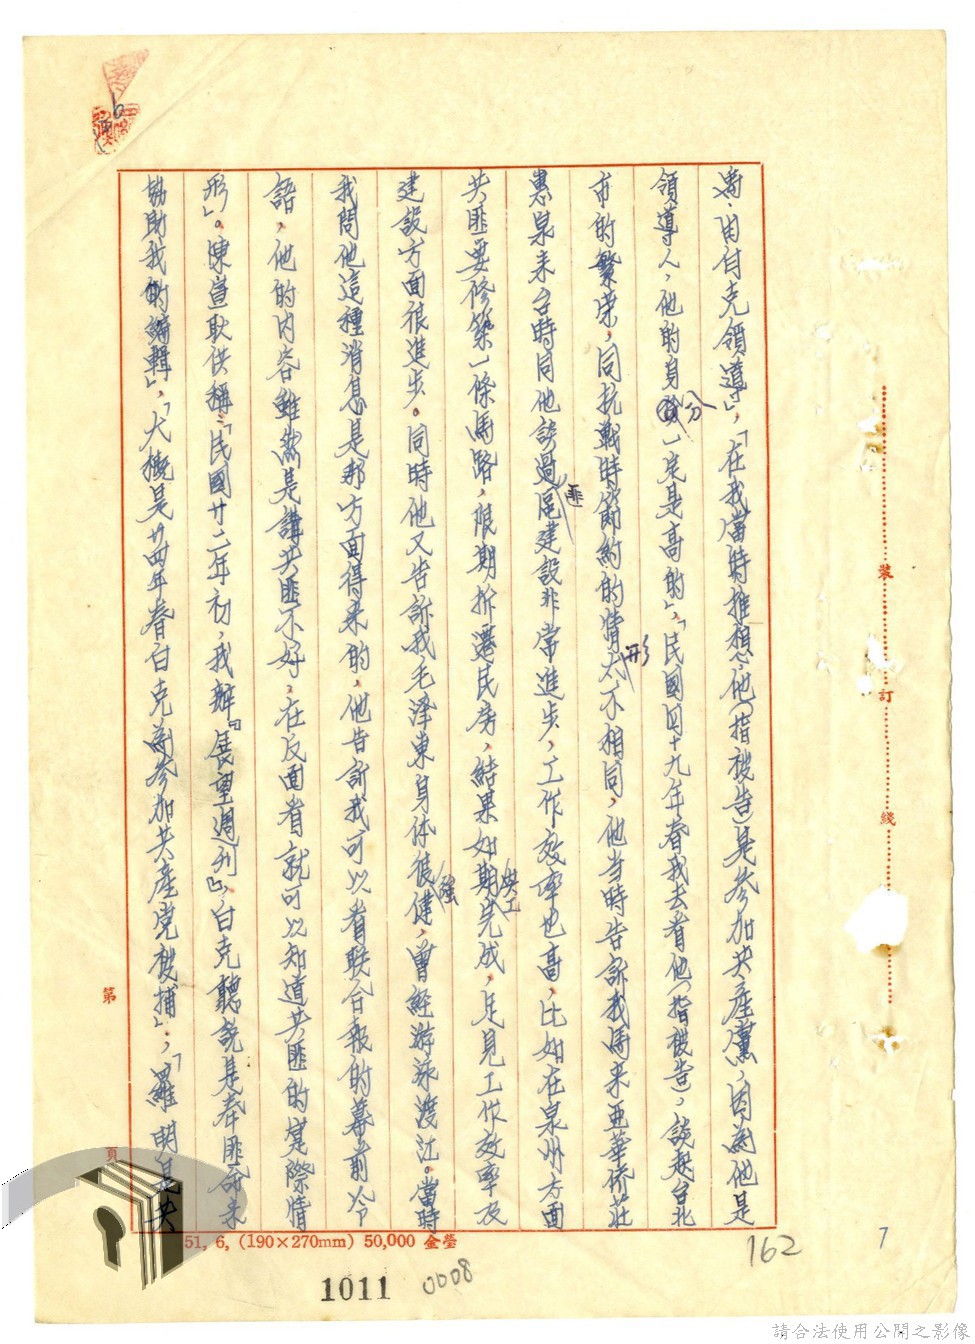 導，由白克領導」，「在我當時推想，他（指被告）是參加共產黨，因為他是
領導人，他的身分一定是高的」，「民國四十九年春我去看他（指被告），談起台北
市的繁榮，同抗戰時節約的情形大不相同，他当時告訴我馬來亞華侨莊
惠泉來台時同他談過匪區建設非常進步，工作效率也高，比如在泉州方面
共匪要修築一條馬路，限期拆遷民房，結果如期完成，足見工作效率及
建設方面很進步。同時他又告訴我毛泽東身体很強健，曾經游泳渡江。當時
我問他這種消息是那方面得來的，他告訴我可以看联合報的幕前冷
語，他的內容雖然是講共匪不好，在反面看就可以知道共匪的實際情
形」。陳宣耿供稱：「民國廿二年初，我辦『展望週刊』，白克聽說是奉匪命來
協助我的編輯」，「大概是廿四年春白克為參加共產党被捕」，「羅明是共
裝
訂
綫
第
頁
51, 6, (190×270mm) 50,000 金瑩
1011
0008
162
7
請合法使用公開之影像